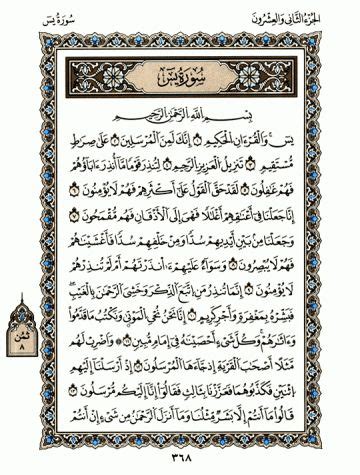 الجزء الثاني والعشرون سورة يس
سورة يس
بسم الله الرحمن الرحيم
يس ۝ والقرءان الحكيم ۝ إنك لمن المرسلين ۝ على صراط
مستقيم ۝ تنزيل العزيز الرحيم ۝ لتنذر قوما ما أنذر ءاباؤهم
فهم غافلون ۝ لقد حق القول على أكثرهم فهم لا يؤمنون ۝
إنا جعلنا في أعناقهم أغلالا فهي إلى الأذقان فهم مقمحون ۝
وجعلنا من بين أيديهم سدا ومن خلفهم سدا فأغشيناهم
فهم لا يبصرون ۝ وسواء عليهم ءأنذرتهم أم لم تنذرهم
لا يؤمنون ۝ إنما تنذر من اتبع الذكر وخشي الرحمن بالغيب
فبشره بمغفرة وأجر كريم ۝ إنا نحن نحي الموتى ونكتب ما قدموا
وءاثارهم وكل شيء أحصيناه في إمام مبين ۝ واضرب لهم
مثلا أصحاب القرية إذ جاءها المرسلون ۝ إذ أرسلنا إليهم
اثنين فكذبوهما فعززنا بثالث فقالوا إنا إليكم مرسلون ۝
قالوا ما أنتم إلا بشر مثلنا وما أنزل الرحمن من شيء إن أنتم
ثمن
٨
٣٦٨